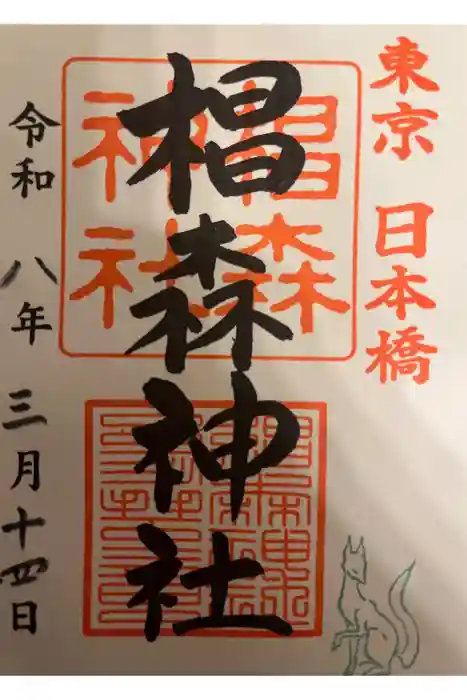 東京 日本橋
椙森神社
椙森
神社
令和 八年 三月十四日